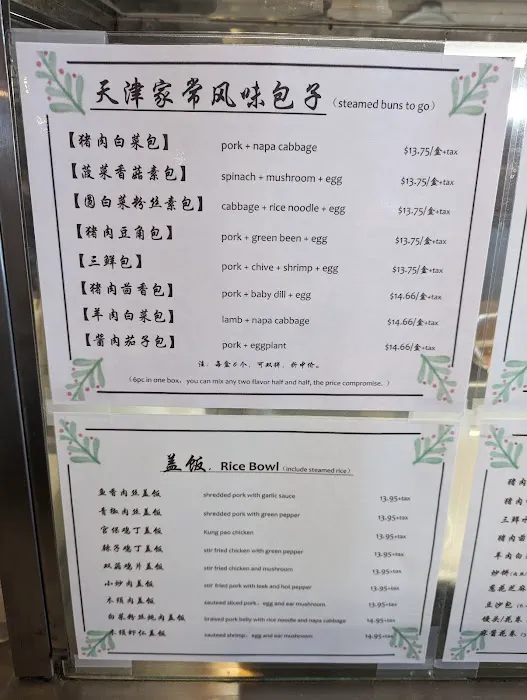 天津家常风味包子 (steamed buns to go)
【猪肉白菜包】 pork + napa cabbage $13.75/盒+tax
【菠菜香菇素包】 spinach + mushroom + egg $13.75/盒+tax
【圆白菜粉丝素包】 cabbage + rice noodle + egg $13.75/盒+tax
【猪肉豆角包】 pork + green been + egg $13.75/盒+tax
【三鲜包】 pork + chive + shrimp + egg $13.75/盒+tax
【猪肉茴香包】 pork + baby dill + egg $14.66/盒+tax
【羊肉白菜包】 lamb + napa cabbage $14.66/盒+tax
【酱肉茄子包】 pork + eggplant $14.66/盒+tax
注：每盒6个，可双拼，折中价。
(6pc in one box, you can mix any two flavor half and half, the price compromise. )
盖饭. Rice Bowl (include steamed rice)
鱼香肉丝盖饭 shredded pork with garlic sauce 13.95+tax
青椒肉丝盖饭 shredded pork with green pepper 13.95+tax
宫保鸡丁盖饭 Kung pao chicken 13.95+tax
辣子鸡丁盖饭 stir fried chicken with green pepper 13.95+tax
双菇鸡片盖饭 stir fried chicken and mushroom 13.95+tax
小炒肉盖饭 stir fried pork with leek and hot pepper 13.95+tax
木须肉盖饭 sauteed sliced pork, egg and ear mushroom 13.95+tax
白菜粉丝炖肉盖饭 braised pork belly with rice noodle and napa cabbage 14.95+tax
木须虾仁盖饭 sauteed shrimp, egg and ear mushroom 14.95+tax
猪肉
猪肉
三鲜
猪肉茴
羊肉白
炒饼
葱花芝麻
豆沙包
馒头/花卷
麻酱花卷